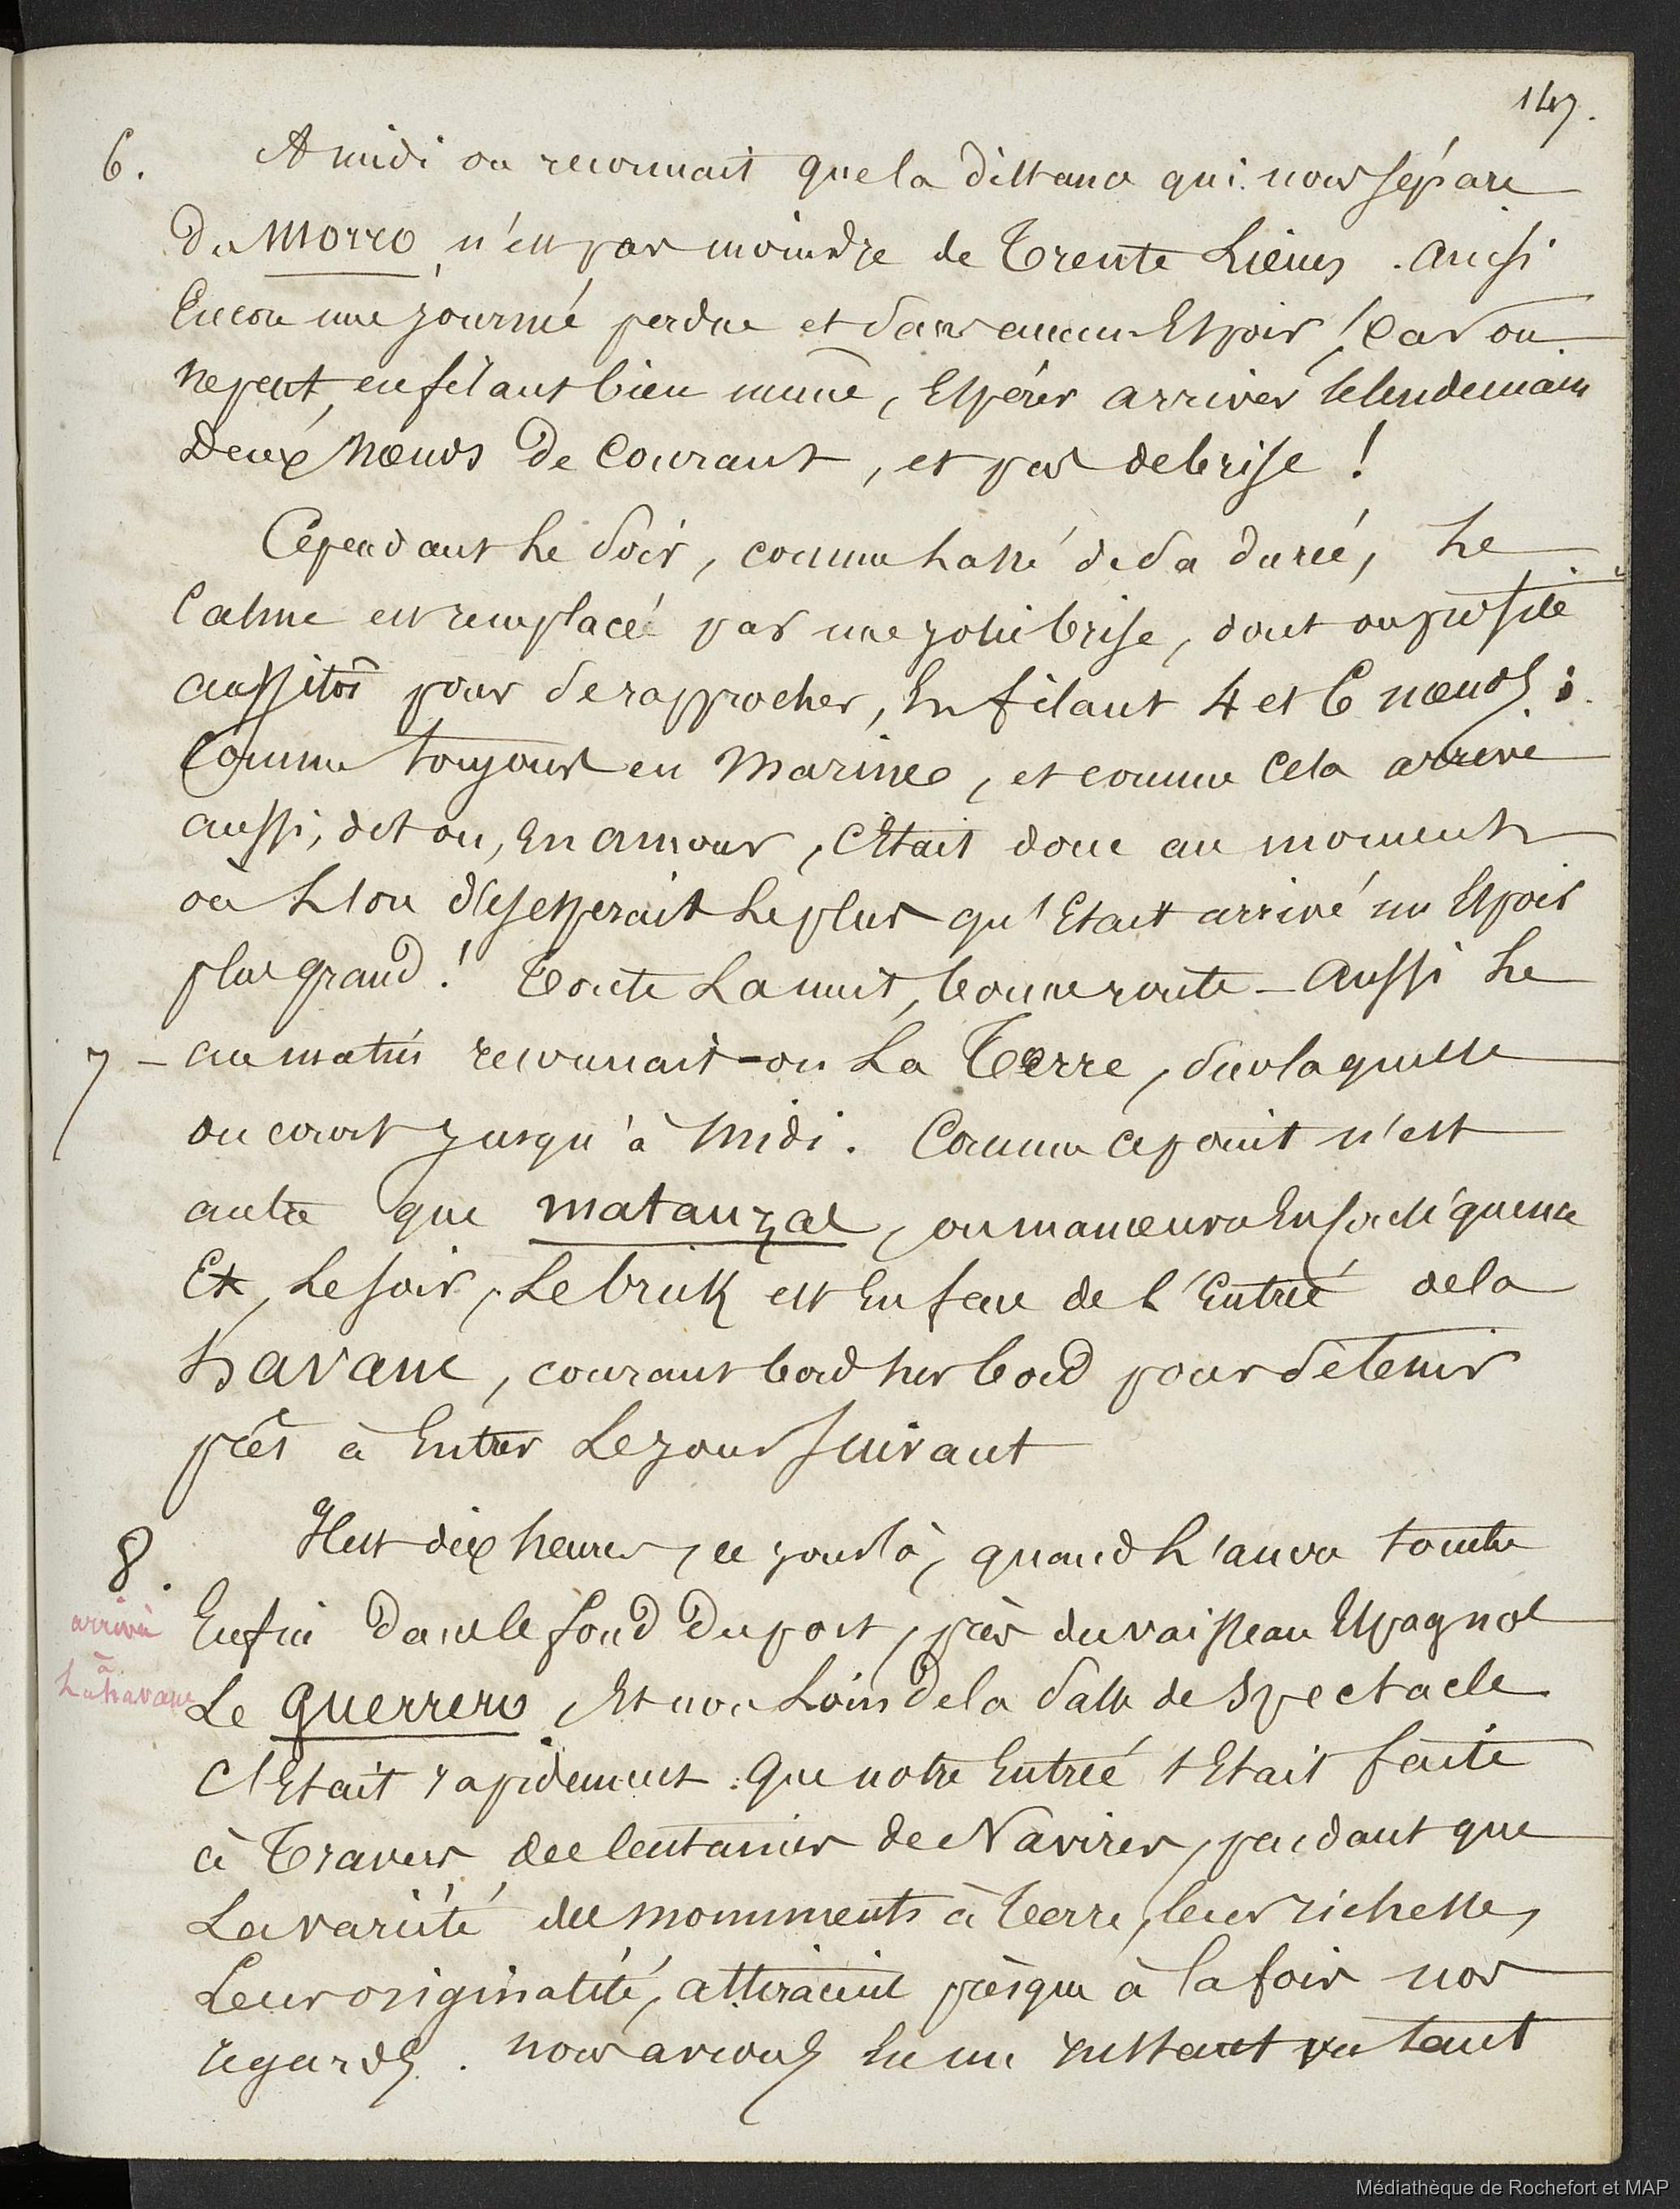 147.
6. A midi on reconnait que la distance qui nous sépare
du Morro, n'est pas moindre de Trente Lieues. Ainsi
Encore une journée perdue et sans aucun Espoir ! Car on
ne peut, en filant bien même, Espérer arriver le lendemain
Deux nœuds De Courant, et pas de brise !
Cépendant Le Soir, comme lassé de sa durée, Le
Calme est remplacé par une jolie brise, dont on profite
aussitôt pour se rapprocher, En filant 4 et 6 nœuds :
Comme toujours en Marine, et comme Cela arrive
aussi, dit on, En amour, C'Etait donc au moment
où L'on désésperait Le plus qu'Etait arrivé un Espoir
plus grand ! Toute La nuit, bonne route - Aussi Le
7 - au matin reconnait-on La Terre, sur laquelle
on court jusqu'à Midi. Comme ce point n'est
autre que Matanzas, on manœuvre En conséquence
Et, Le soir, Le brick est En face de L'Entrée de la
havane, courant bord sur bord pour se tenir
prêt à Entrer Le jour suivant
8. Il est dix heures, ce jour là, quand L'ancre tombe
Enfin Dans le fond Du port, près du vaisseau Espagnol
arrivée
à
La havane
Le Guerrero, Et non Loin de la Salle de Spectacle
C'Etait rapidement que notre Entrée s'Etait faite
à Travers des centaines de Navires, pendant que
La variété des monuments à Terre, leur richesse,
Leur originalité, attiraient presque à la fois nos
regards. nous avions En un instant vu tant
Médiathèque de Rochefort et MAP